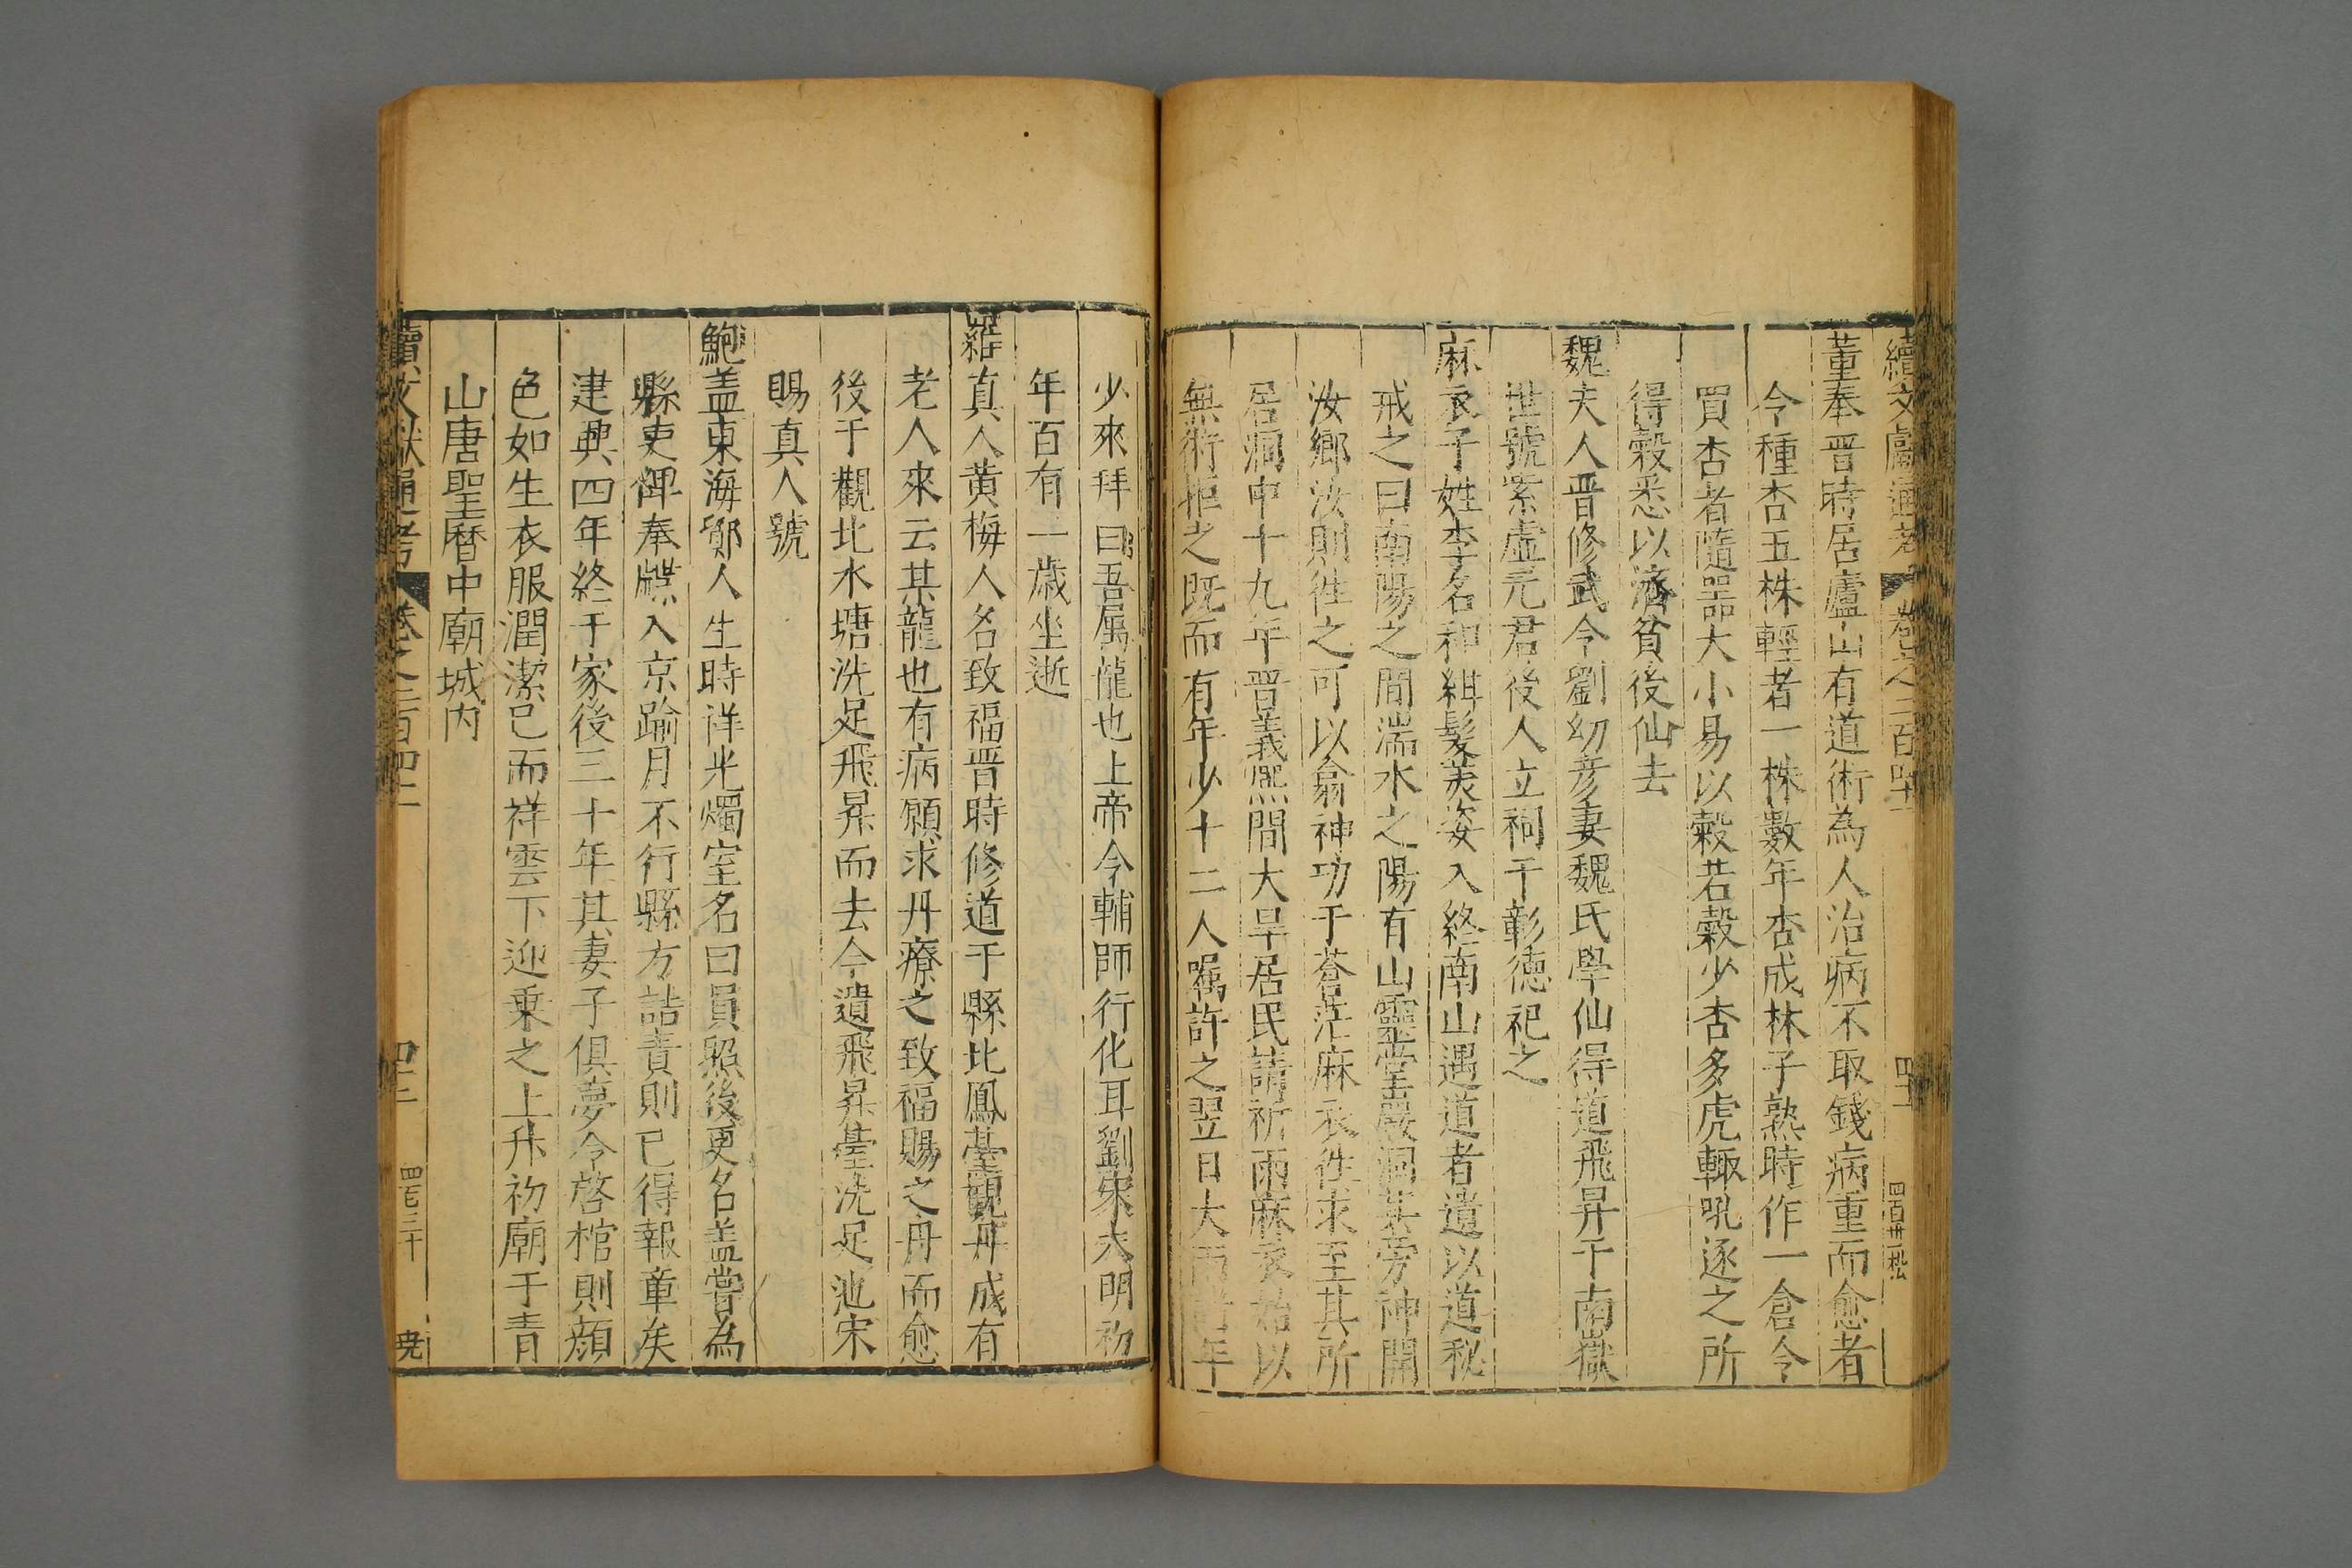 續文獻通考 卷之二百四十一 四十一 四百卅一 松
董奉晋時居廬山有道術為人治病不取錢病重而愈者
令種杏五株輕者一株數年杏成林子熟時作一倉令
買杏者隨器大小易以穀若穀少杏多虎輒吼逐之所
得穀悉以濟貧後仙去
魏夫人晋修武令劉幼彦妻魏氏學仙得道飛昇于南嶽
世號紫虛元君後人立祠于彰德祀之
麻衣子姓李名和紺髮美姿入終南山遇道者遺以道秘
戒之曰南陽之間湍水之陽有山靈堂巖洞其旁神開
汝鄉汝則徃之可以翕神功于蒼茫麻衣徃求至其所
居洞中十九年晋義熈間大旱居民請祈雨麻衣始以
無術拒之既而有年少十二人嘱許之翌日大雨 年
少來拜曰吾属龍也上帝令輔師行化耳劉宋大明初
年百有一歲坐逝
羅真人黄梅人名致福晋時修道于縣比鳳臺觀丹成有
老人來云某龍也有病願求丹療之致福賜之丹而愈
後于觀北水塘洗足飛昇而去今遺飛昇臺洗足池宋
賜真人號
鮑盖東海鄮人生時祥光燭室名曰員照後更名盖嘗為
縣吏俾奉牒入京踰月不行縣方詰責則已得報章矣
建興四年終于家後三十年其妻子俱夢令啓棺則顏
色如生衣服潤潔已而祥雲下迎乗之上升初廟于青
山唐聖曆中廟城内
續文獻通考 卷之二百四十一 四十二 四百三十 尭